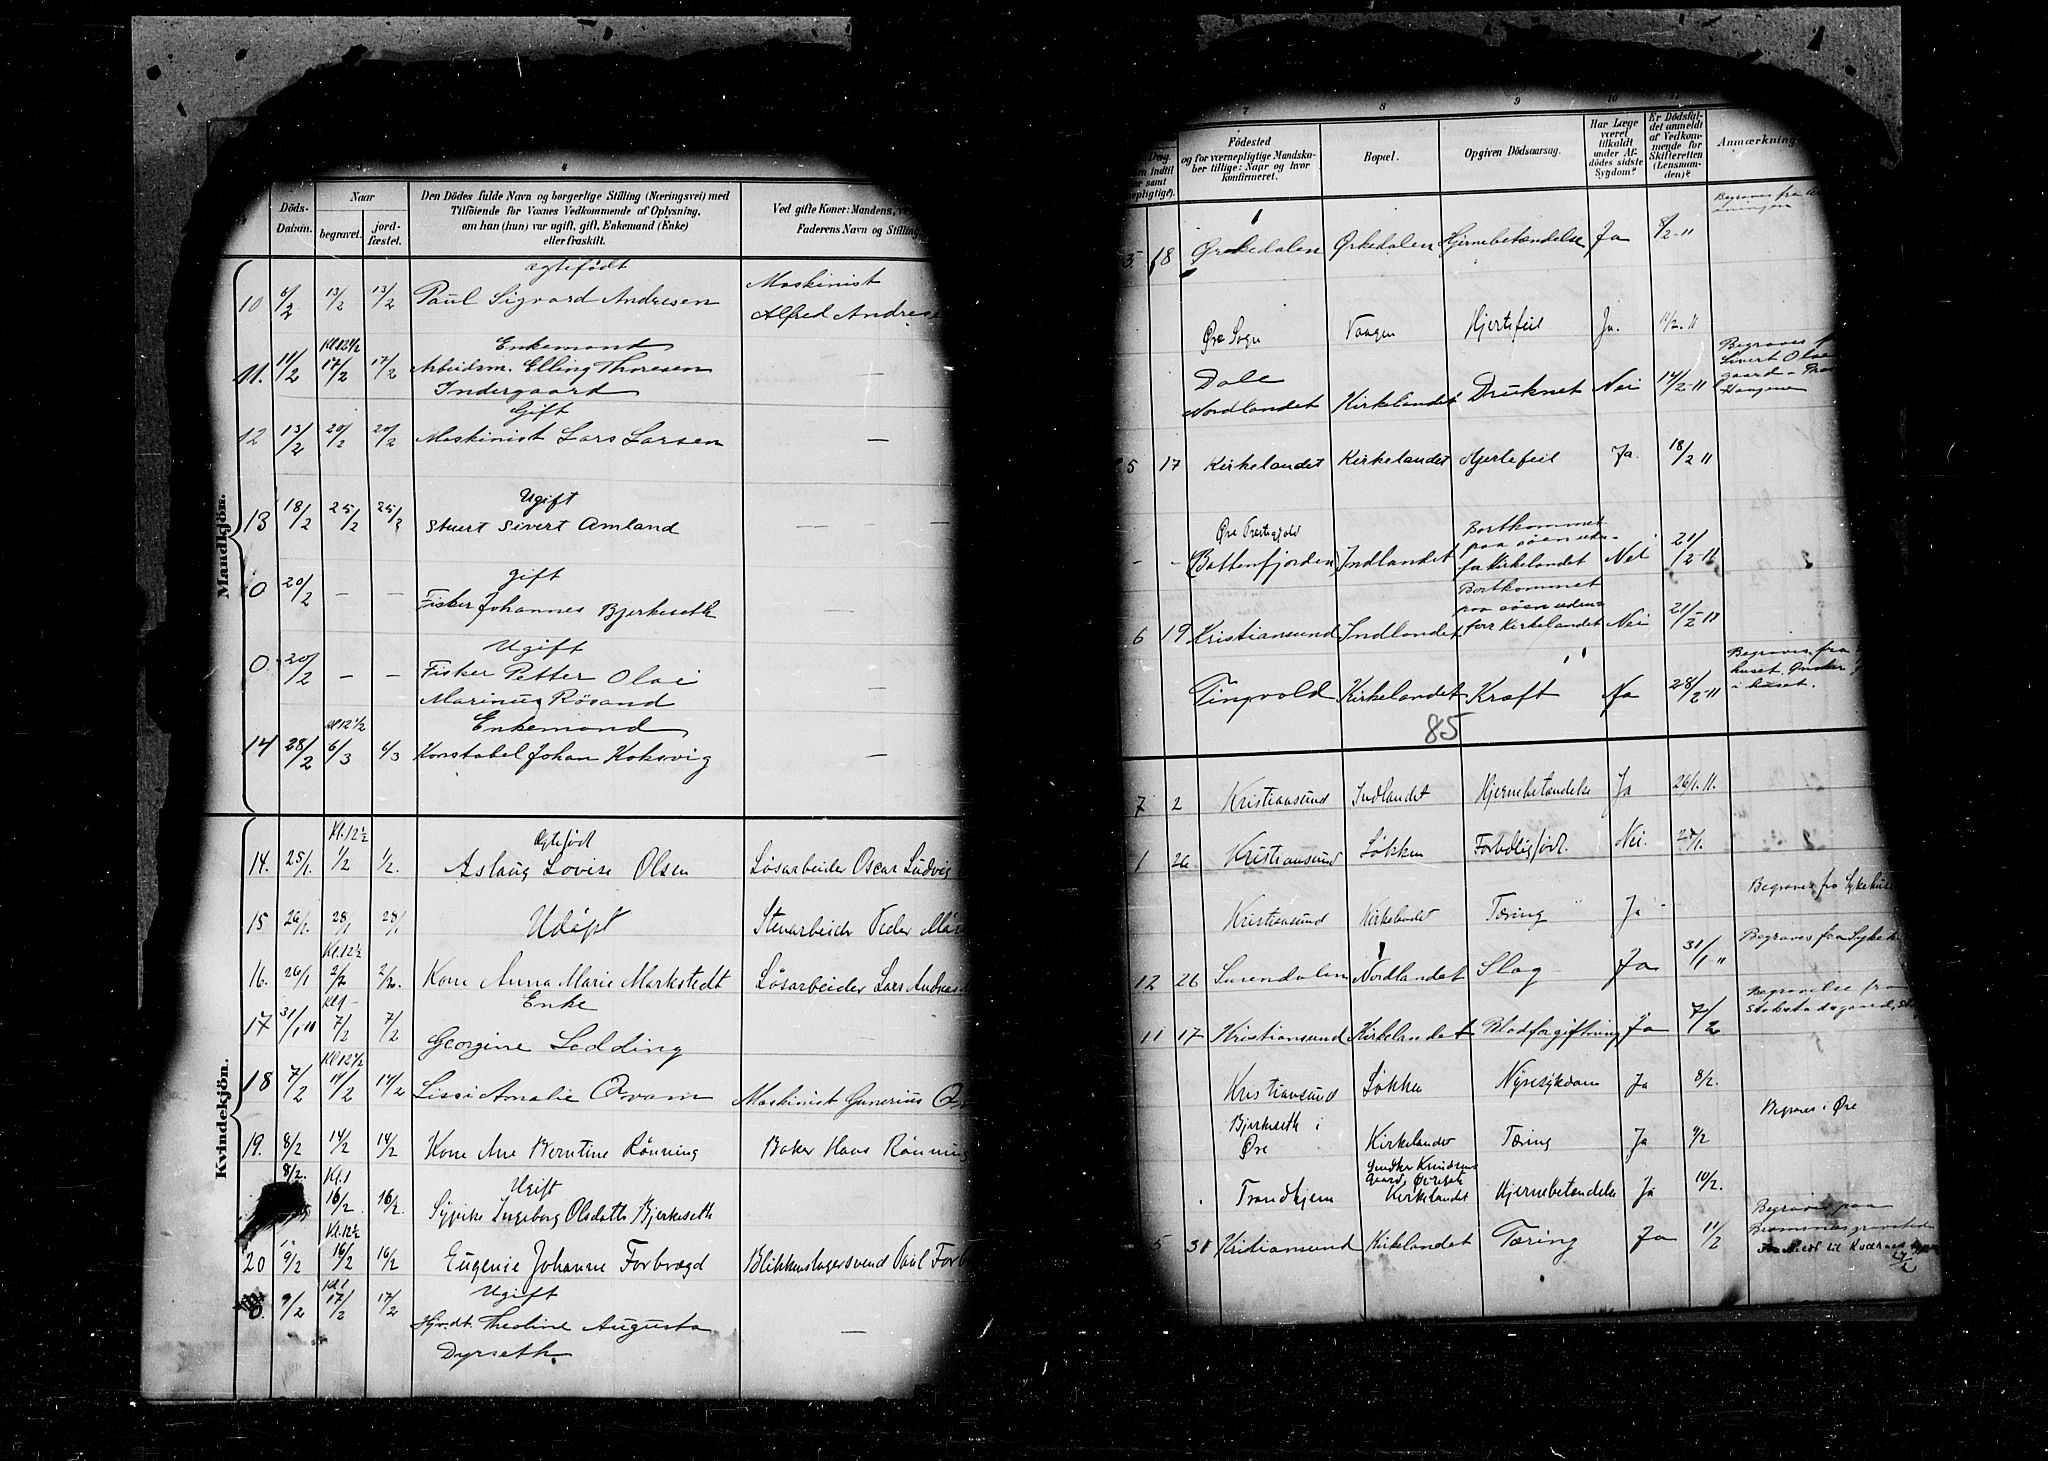 4
Döds-
Datum.
Naar
begravet.
jord-
fæstet.
Den Dödes fulde Navn og borgerlige Stilling (Næringsvei) med
Tilföiende for Voxnes Vedkommende af Oplysning,
om han (hun) var ugift, gift, Enkemand (Enke)
eller fraskilt.
Ved gifte Koner: Mandens,
Faderens Navn og Stilling
Mandkjön.
ægtefødt
10 6/2 13/2 13/2 Paul Sigvard Andresen Maskinist
Alfred Andrese
Kl 12 1/2 Enkemand
11. 11/2 17/2 17/2 Arbeidsm. Elling Thoresen —
Indergaard
Gift
12 13/2 20/2 20/2 Maskinist Lars Larsen —
Ugift
13 18/2 25/2 25/2 Stuert Sivert Amland —
gift
0 20/2 — — Fisker Johannes Bjerkeseth —
Ugift
0 20/2 — — Fisker Petter Olai —
Marinus Rösand
Kl 12 1/2 Enkemand
14 28/2 6/3 6/3 Konstabel Johan Koksvig —
Kvindekjön.
Kl. 12 1/2 Ægtefødt
14. 25/1. 1/2 1/2. Aslaug Lovise Olsen Løsarbeider Oscar Ludvig
15 26/1. 28/1 28/1 Udøpt Stenarbeider Peder
Kl. 12 1/2
16. 26/1 2/2 2/2. Kone Anna Marie Markstedt Løsarbeider Lars Andreas
Kl 1 Enke
17 31/1 11 7/2 7/2 Georgine Ledding
Kl 12 1/2
18 7/2 14/2 14/2 Lissi Amalie Qvam Maskinist Gunerius
19. 8/2 14/2 14/2 Kone Ane Berntine Rønning Baker Hans Rønning
8/2. Kl. 1 Ugift
16/2. 16/2. Sypike Ingeborg Olsdatter Bjerkeseth
Kl. 12 1/2
20 9/2 16/2 16/2 Eugenie Johanne Forbregd Blikkenslagersvend Paul Forb
Kl. 1 Ugift
0. 9/2 17/2 17/2 Theoline Augusta —
Dyrseth.
7 8 9 10
Födested
og for værnepligtige Mandsku-
ber tillige: Naar og hvor
konfirmeret.
Bopæl.
Opgiven Dödsaarsag.
Har Læge
været
tilkaldt
under Af-
dödes sidste
Sygdom?
Er Dödsfal-
det anmeldt
af Vedkom-
mende for
Skifteretten
(Lensman-
den)?
Anmærkning
Begraves fra
5 18 Ørkedalen Ørkedalen Hjernebetændelse Ja 8/2-11
Øre Sogn Vaagen Hjertefeil Ja. 11/2-11
Begraves
Sivert Olse
gaard
Vaagene
Dale
Nordlandet Kirkelandet Druknet Nei 14/2-11
5 17 Kirkelandet Kirkelandet Hjertefeil Ja 18/2 11
Øre Prestegjeld Bortkommet
paa söen uden-
- - (Battenfjorden) Indlandet for Kirkelandet Nei 21/2-11
Bortkommet
paa söen uden-
6 19 Kristiansund Indlandet forr Kirkelandet Nei 21/2-11
Begraves fra
huset. Ønsker
i huset.
Tingvold Kirkelandet Kræft Ja 28/2-11
85
7 2 Kristiansund Indlandet Hjernebetændelse Ja 26/1. 11.
1 26 Kristiansund Løkken Forbdligfødt. Nei. 27/1.
Begraves fra Sykehuse
Kristiansund Kirkelandet Tæring Ja
Begraves fra Sykeh
12 26 Surendalen Nordlandet Slag Ja 31/1 "
Begravelse fra
Stokstadsgaard,
11 17 Kristiansund Kirkelandet Blodforgiftning Ja 7/2
Kristiansund Løkken Nyresykdom Ja 8/2.
Bjerkeseth i
Øre Kirkelandet Tæring Ja 9/2
Begraves i Øre
Snedker Knudsens
Gaard,
Trondhjem Kirkelandet Hjernebetændelse Ja 10/2.
5 31 Kristiansund Kirkelandet Tæring Ja 11/2
Begraves paa
Bremsnes gravsted
til Kvernes